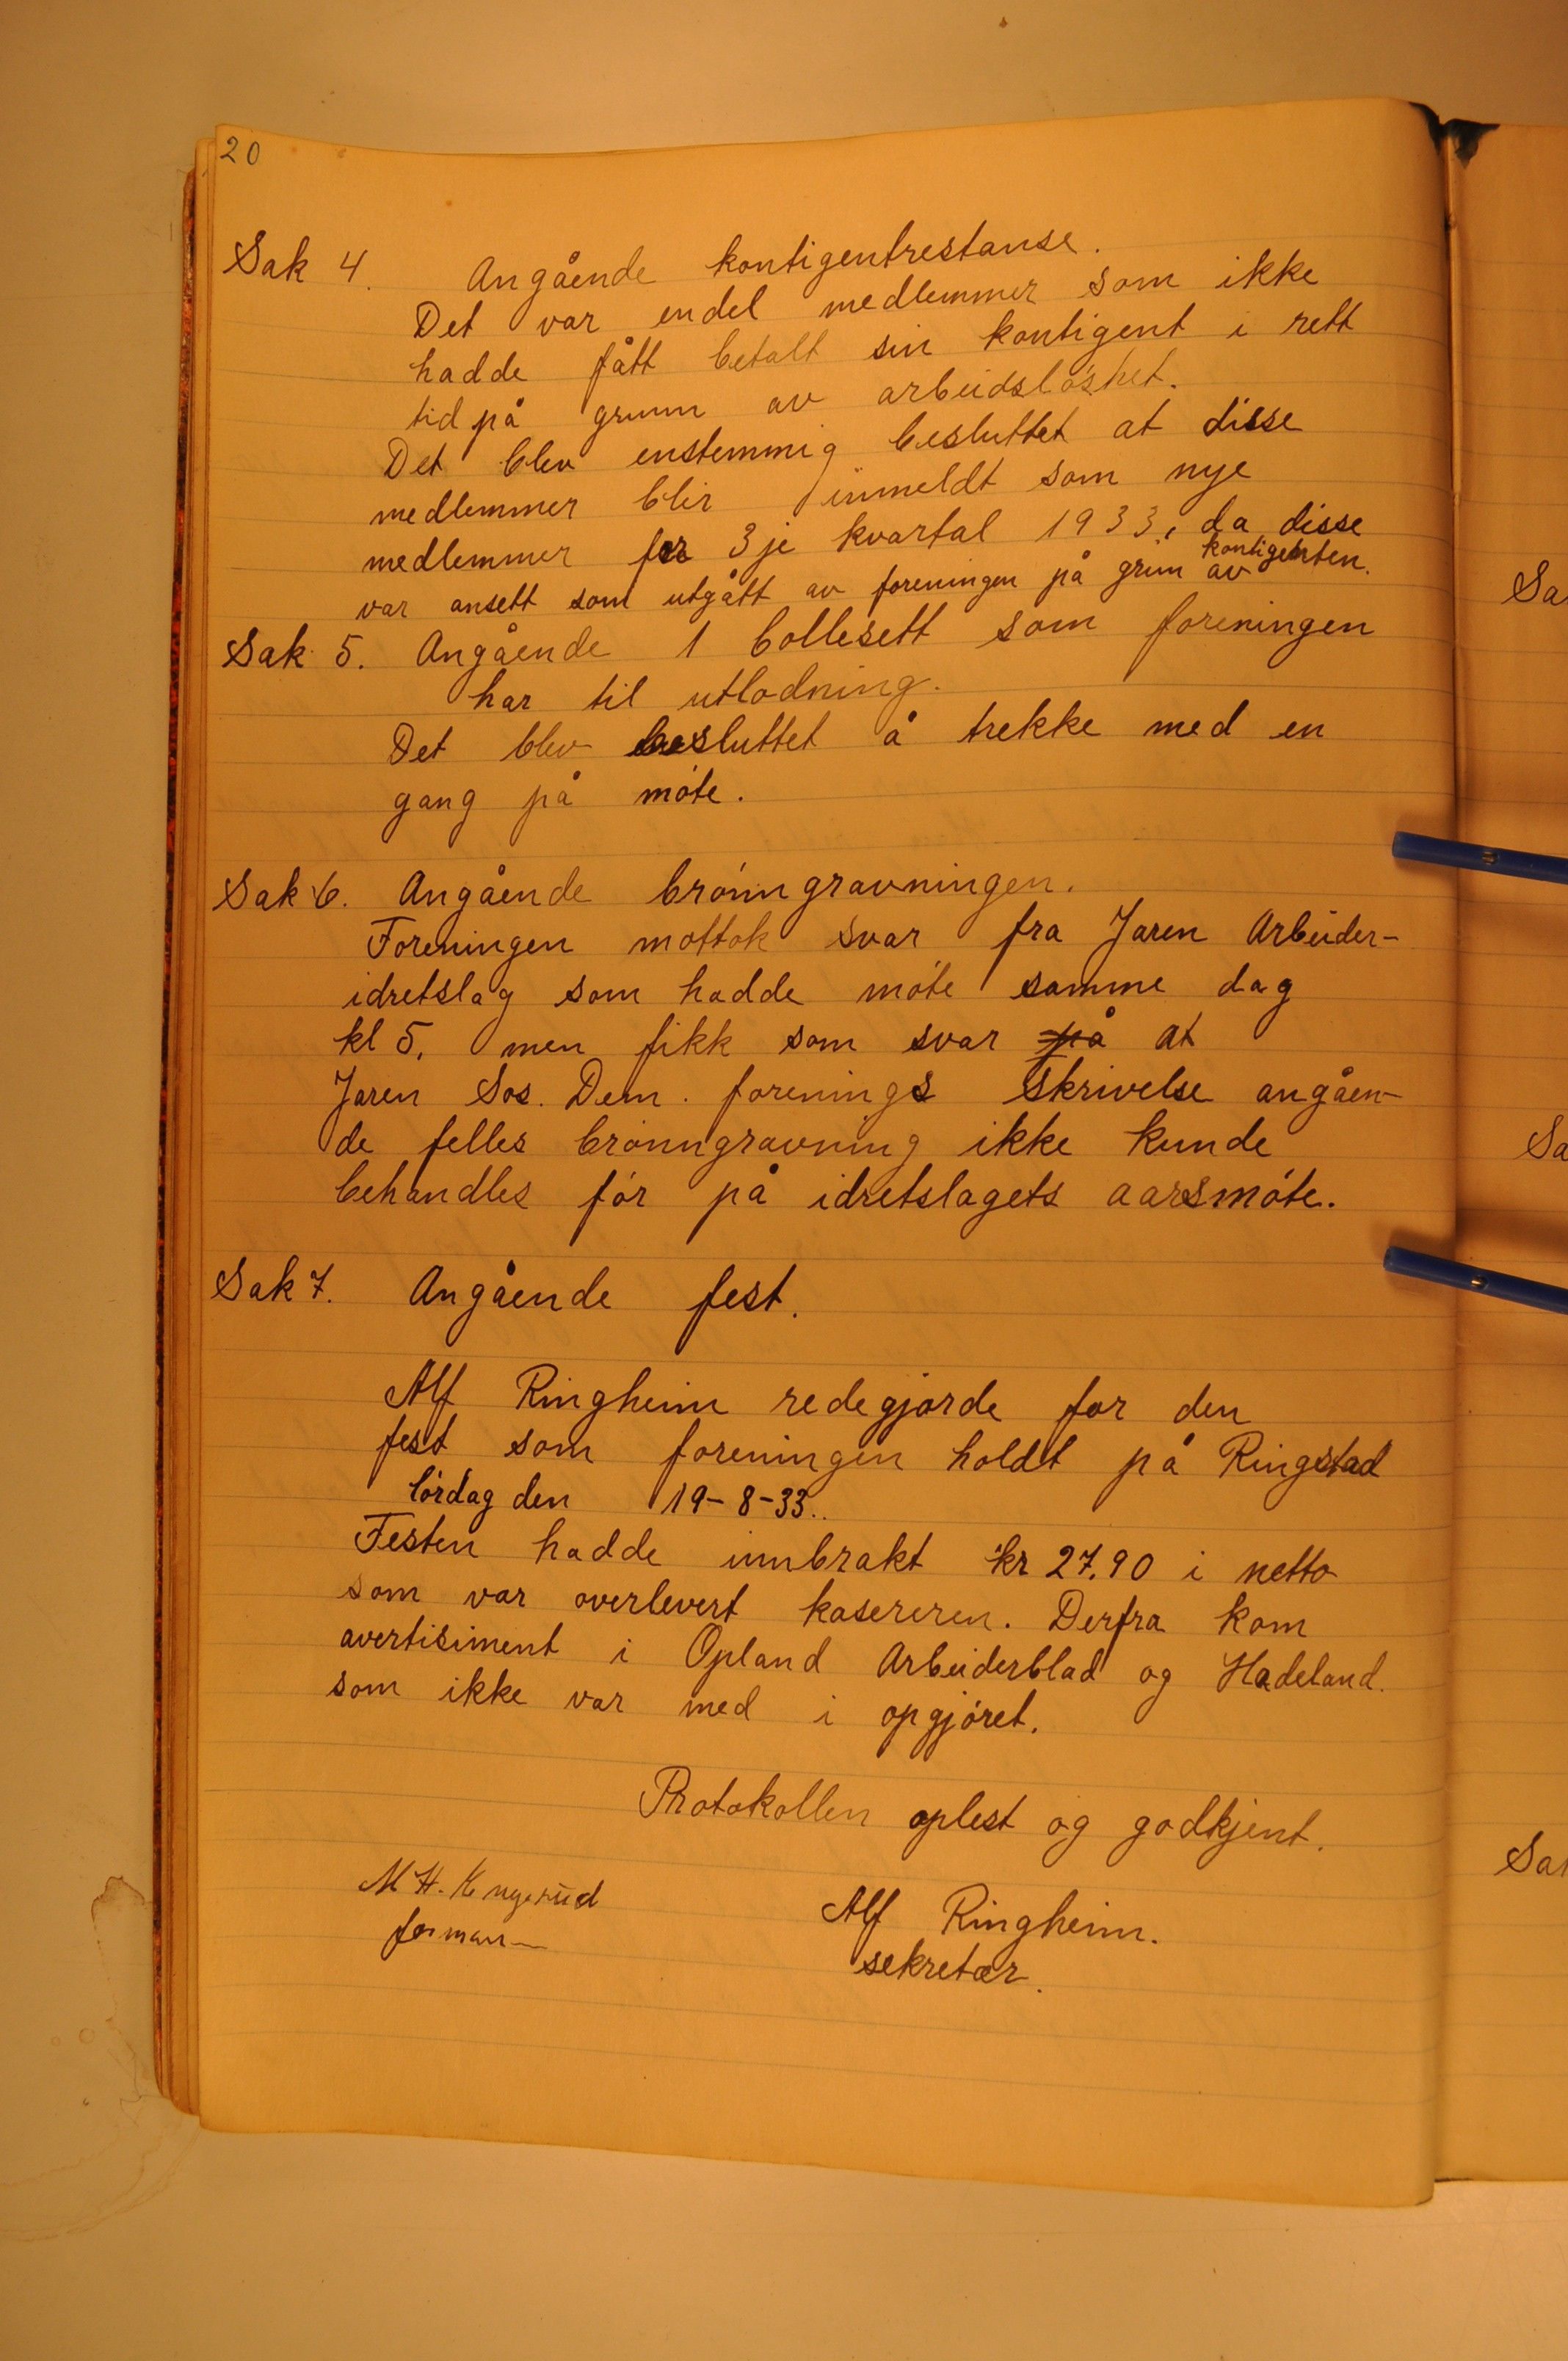 20
Sak 4. Angående kontigentrestanse.
Det var endel medlemmer som ikke
hadde fått betalt sin kontigent i rett
tid på grunn av arbeidsløshet.
Det blev enstemmig besluttet at disse
medlemmer blir innmeldt som nye
medlemmer for 3je kvartal 1933, da disse
var ansett som utgått av foreningen på grun av kontigenten.
Sak 5. Angående 1 bollesett som foreningen
har til utlodning.
Det blev besluttet å trekke med en
gang på møte.
Sak 6. Angående brønngravningen.
Foreningen mottok svar fra Jaren Arbeider-
idretslag som hadde møte samme dag
kl 5. men fikk som svar på at
Jaren Sos. Dem. forenings skrivelse angåen-
de felles brønngravning ikke kunde
behandles før på idretslagets aarsmøte.
Sak 7. Angående fest.
Alf Ringheim redegjorde for den
fest som foreningen holdt på Ringstad
lørdag den 19-8-33..
Festen hadde innbrakt kr 27,90 i netto
som var overlevert kasereren. Derfra kom
avertisiment i Opland Arbeiderblad og Hadeland.
som ikke var med i opgjøret.
Protokollen oplest og godkjent.
M H.
forman
Alf Ringheim.
sekretær.
Sa
Sa
Sak